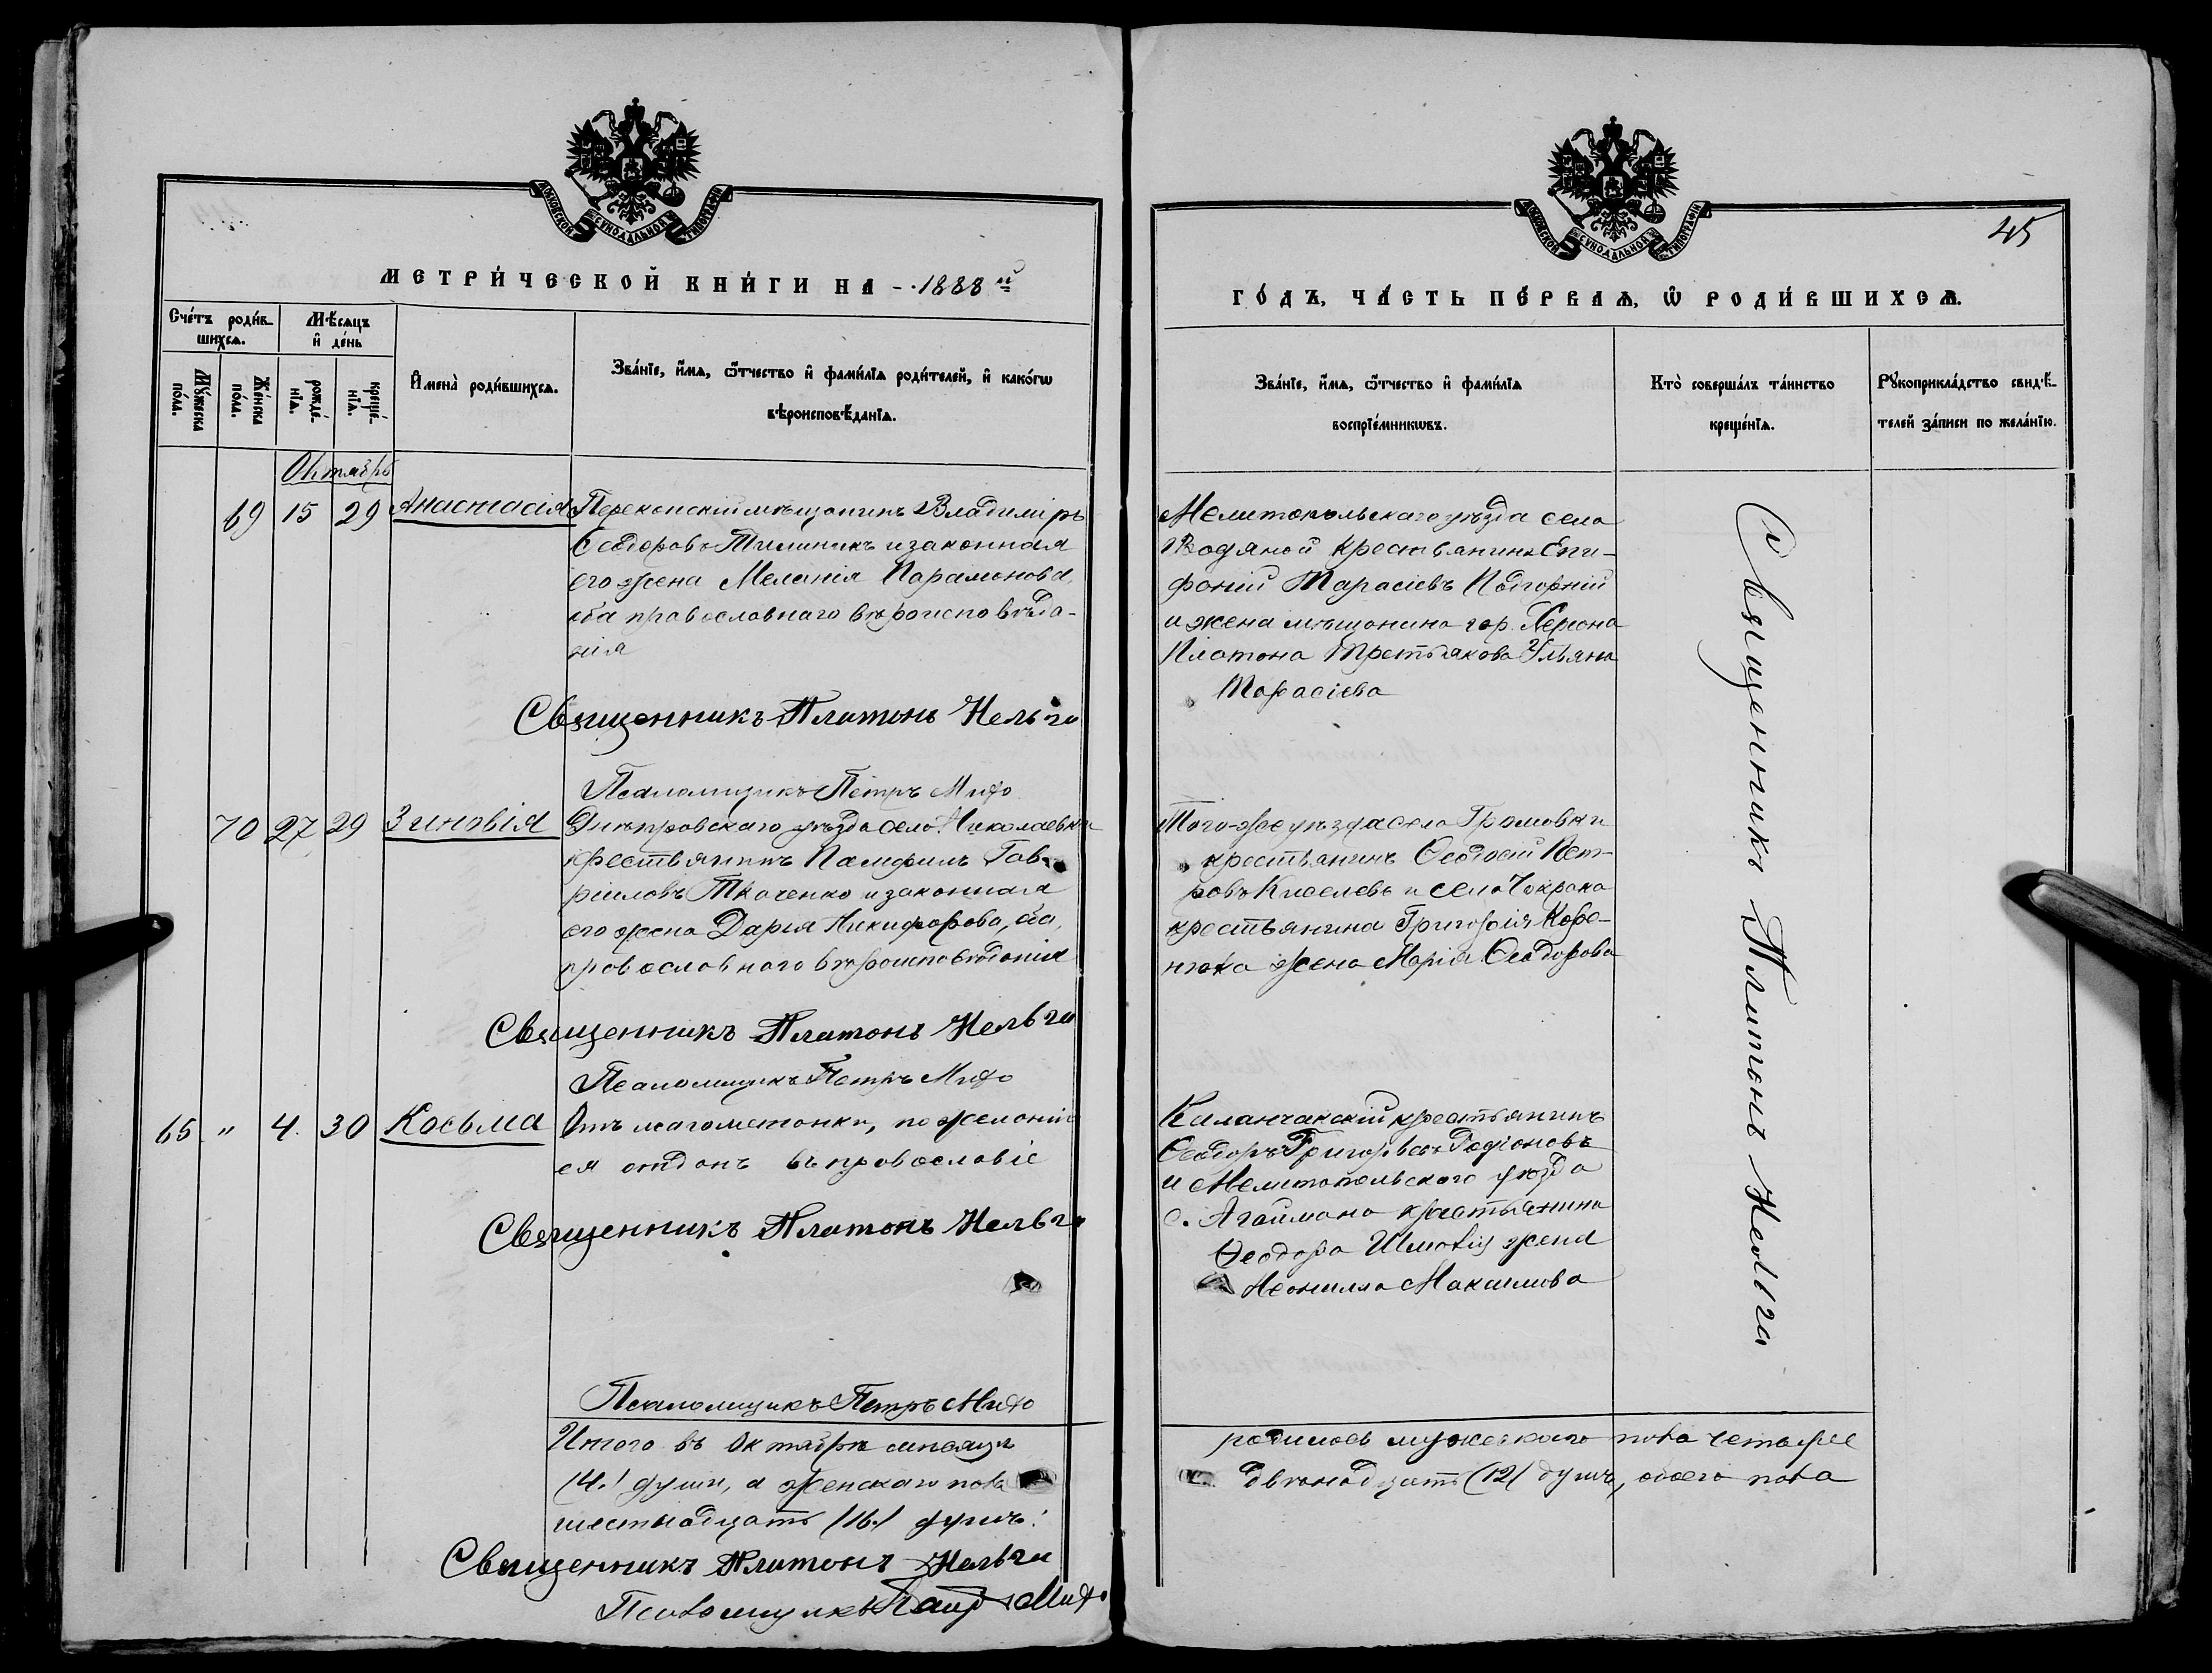 МОСКОВСКОЙ СѴНОДАЛЬНОЙ ТИПОГРАФІИ
МЕТРИ́ЧЕСКОЙ КНИ́ГИ НА 1888 й
Сче́тъ роди́в-
шихсѧ.
Мѣ́сѧцъ
и҆ де́нь
Мꙋ́жеска
по́ла.
Же́нска
по́ла.
рожде́-
нїѧ.
креще́-
нїѧ.
И҆мена̀ роди́вшихсѧ.
Зва́нїе, и҆́мѧ, ѻ҆́тчество и҆ фами́лїѧ роди́телей, и҆ како́гѡ
вѣроисповѣ́данїѧ.
Октябрь
69 15 29 Анастасія Перекопскій мѣщанинъ Владиміръ
Ѳеодоровъ и законная
его жена Меланія Парамонова,
оба православнаго вѣроисповѣда-
нія
Священникъ Платонъ Нельга
Псаломщикъ Петръ
70 27 29 Зиновія Днѣпровскаго уѣзда села Николаевки
крестьянинъ Памфилъ Гав-
ріиловъ Ткаченко и законная
его жена Дарья Никифорова, оба
православнаго вѣроисповѣданія
Священникъ Платонъ Нельга
Псаломщикъ Петръ
65 " 4. 30 Косьма Отъ магометанки, по желанію
ея отданъ въ православіе
Священникъ Платонъ Нельга
Псаломщикъ Петръ
Итого въ Октябрѣ мѣсяцѣ
(4.) души, а женскаго пола
шестнадцать (16.) душъ.
Священникъ Платонъ Нельга
Псаломщикъ Петръ
МОСКОВСКОЙ СѴНОДАЛЬНОЙ ТИПОГРАФІИ
45
ГО́ДЪ, ЧА́СТЬ ПЕ́РВАѦ, Ѡ҆ РОДИ́ВШИХСѦ.
Зва́нїе, и҆́мѧ, ѻ҆́тчество и҆ фами́лїѧ
воспрїе́мникѡвъ.
Кто̀ соверша́лъ та́инство
креще́нїѧ.
Рꙋкоприкла́дство свидѣ́-
телей за́писи по жела́нїю.
Мелитопольскаго уѣзда села
Водяной крестьянинъ Епи-
фаній Тарасіевъ Подгорній
и жена мѣщанина гор. Херсона
Платона Третьякова Ульяна
Тарасіева
Того-же уѣзда села Громовки
крестьянинъ Ѳеодосій Пет-
ровъ Киселевъ и села Чокрака
крестьянина Григорія Коре-
нюка жена Марія Ѳеодорова
Каланчакскій крестьянинъ
Ѳеодоръ Григорьевъ Родіоновъ
и Мелитопольскаго уѣзда
с. Агаймана крестьянина
Ѳеодора жена
Неонилла Максимова
Священникъ Платонъ Нельга
родилось мужескаго пола четыре
двѣнадцать (12) душъ, обоего пола